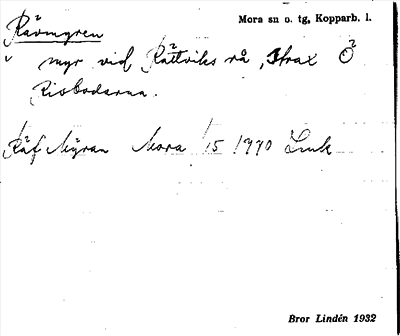 Rävmyren
Mora sn o. tg, Kopparb. l.
myr vid Rättviks rå, strax Ö
Risbodarna.
Räf Myran Mora 15 1770 Link
Bror Lindén 1932